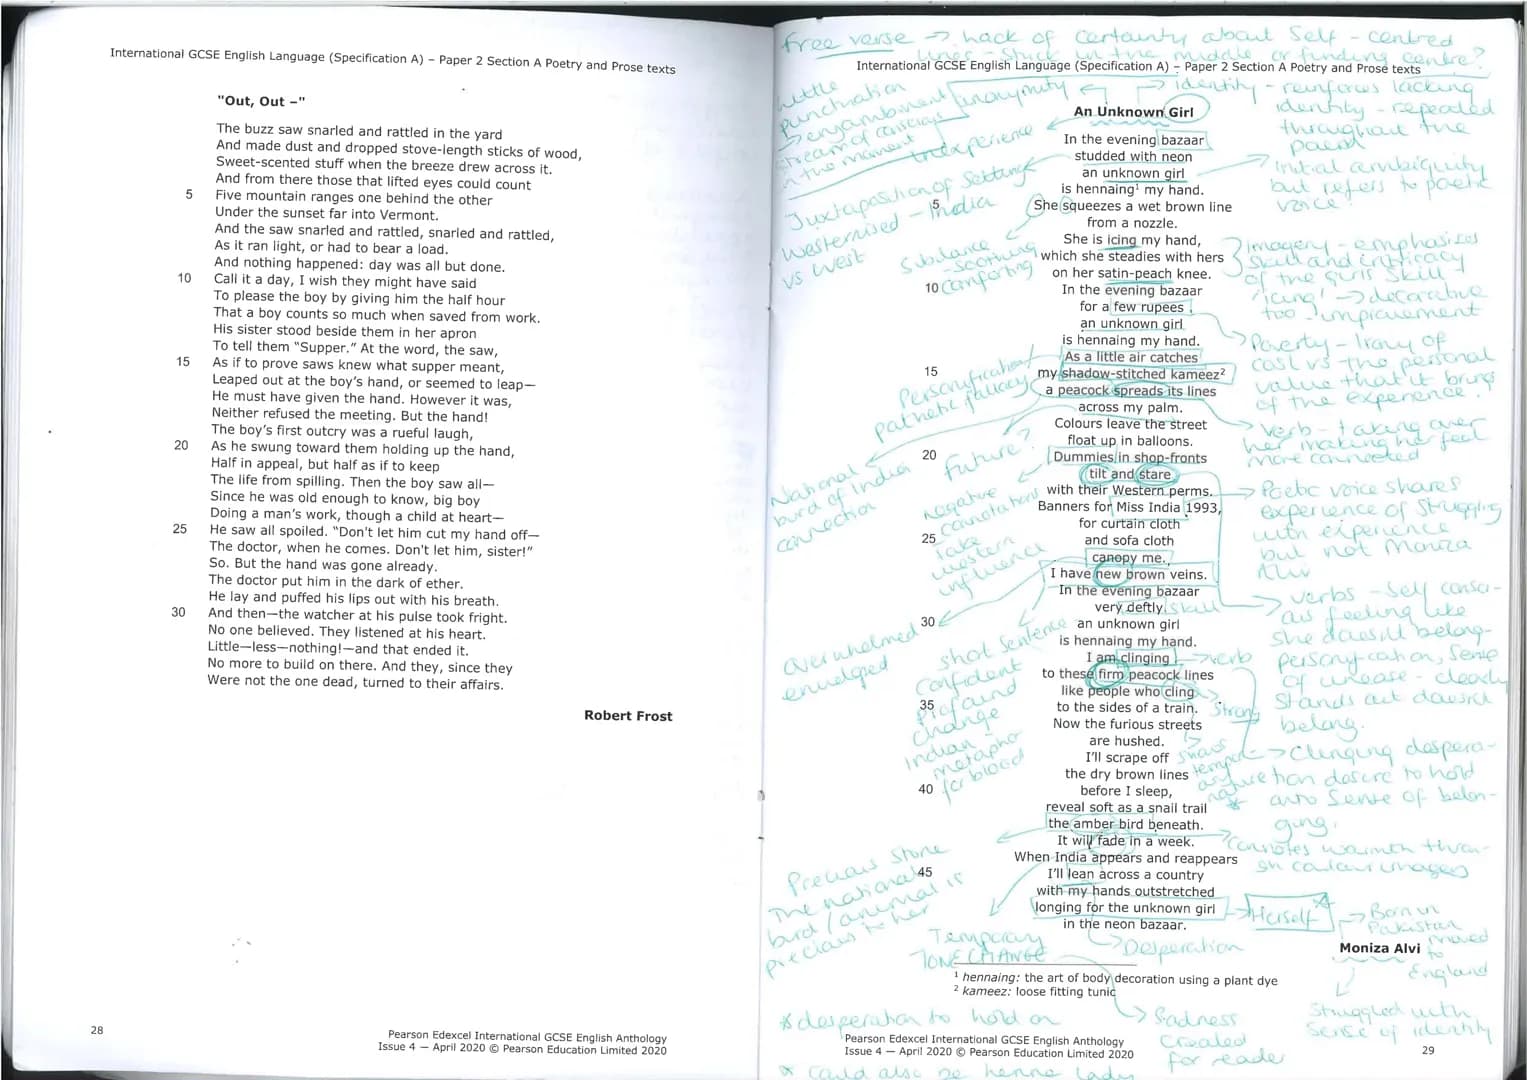 International GCSE English Language (Specification A) – Paper 2 Section A Poetry and Prose texts
"Out, Out –"
The buzz saw snarled and rattled in the yard
And made dust and dropped stove-length sticks of wood,
Sweet-scented stuff when the breeze drew across it.
And from there those that lifted eyes could count
5 Five mountain ranges one behind the other
Under the sunset far into Vermont.
And the saw snarled and rattled, snarled and rattled,
As it ran light, or had to bear a load.
And nothing happened: day was all but done.
10 Call it a day, I wish they might have said
To please the boy by giving him the half hour
That a boy counts so much when saved from work.
His sister stood beside them in her apron
To tell them "Supper." At the word, the saw,
15 As if to prove saws knew what supper meant,
Leaped out at the boy's hand, or seemed to leap—
He must have given the hand. However it was,
Neither refused the meeting. But the hand!
The boy's first outcry was a rueful laugh,
20 As he swung toward them holding up the hand,
Half in appeal, but half as if to keep
The life from spilling. Then the boy saw all—
Since he was old enough to know, big boy
Doing a man's work, though a child at heart—
25 He saw all spoiled. "Don't let him cut my hand off—
The doctor, when he comes. Don't let him, sister!"
So. But the hand was gone already.
The doctor put him in the dark of ether.
He lay and puffed his lips out with his breath.
30 And then—the watcher at his pulse took fright.
No one believed. They listened at his heart.
Little—less—nothing!—and that ended it.
No more to build on there. And they, since they
Were not the one dead, turned to their affairs.
Robert Frost
28
Pearson Edexcel International GCSE English Anthology
Issue 4 — April 2020 © Pearson Education Limited 2020
Free verse → lack of certainty about self - centred
lines - stuck in the middle or finding centre?
International GCSE English Language (Specification A) – Paper 2 Section A Poetry and Prose texts
little
punctuation
→ enjambment
stream of conscious
in the moment
anonymity
inexperience
identity - reinforces lacking
identity - repeated
throughout the
poem
An Unknown Girl
In the evening bazaar
studded with neon
an unknown girl
is hennaing¹ my hand.
5 She squeezes a wet brown line
from a nozzle.
She is icing my hand,
which she steadies with hers
on her satin-peach knee.
10 In the evening bazaar
for a few rupees
an unknown girl
is hennaing my hand.
As a little air catches
15 my shadow-stitched kameez²
a peacock spreads its lines
across my palm.
Colours leave the street
float up in balloons.
20 Dummies in shop-fronts
tilt and stare
with their Western perms.
Banners for Miss India 1993,
for curtain cloth
25 and sofa cloth
canopy me.
I have new brown veins.
In the evening bazaar
very deftly
30 an unknown girl
is hennaing my hand.
I am clinging
to these firm peacock lines
like people who cling
35 to the sides of a train.
Now the furious streets
are hushed.
I'll scrape off
the dry brown lines
40 before I sleep,
reveal soft as a snail trail
the amber bird beneath.
It will fade in a week.
When India appears and reappears
45 I'll lean across a country
with my hands outstretched
longing for the unknown girl
in the neon bazaar.
Moniza Alvi
Initial ambiguity
but refers to poetic
voice.
Juxtaposition of Setting
Westernised - India
vs West
Substance
- soothing
comforting
Imagery - emphasizes
skill and intricacy
of the girls skill
'icing' → decorative
too - improvement
Poverty - Irony of
cost vs the personal
value that it brings
of the experience.
Personification
pathetic fallacy
Verb - taking over
her making her feel
more connected
National
bird of India
connection
Future?
Negative
connotations
fake
western
influence
Poetic voice shares
experience of struggling
with experience
but not Moniza
Alvi
skill
verbs - self consci-
ous feeling like
she doesn't belong-
personification, sense
of unease - clearly
stands out doesn't
belong.
overwhelmed
enveloped
short sentence
confident
profound
change
Indian
metaphor
for blood
verb
strong
shows
temper
→ Clinging despera-
tion desire to hold
onto sense of belon-
ging.
connotes warmth throu-
gh colour images
Precious Stone
The national
bird / animal is
precious to her
Herself
→ Born in
Pakistan
moved
to
England
Temporary
TONE CHANGE
Desperation
¹ hennaing: the art of body decoration using a plant dye
² kameez: loose fitting tunic
Struggled with
sense of identity
* desperation to hold on
Sadness
created
for reader
Pearson Edexcel International GCSE English Anthology
Issue 4 — April 2020 © Pearson Education Limited 2020
29
* could also be henna lady